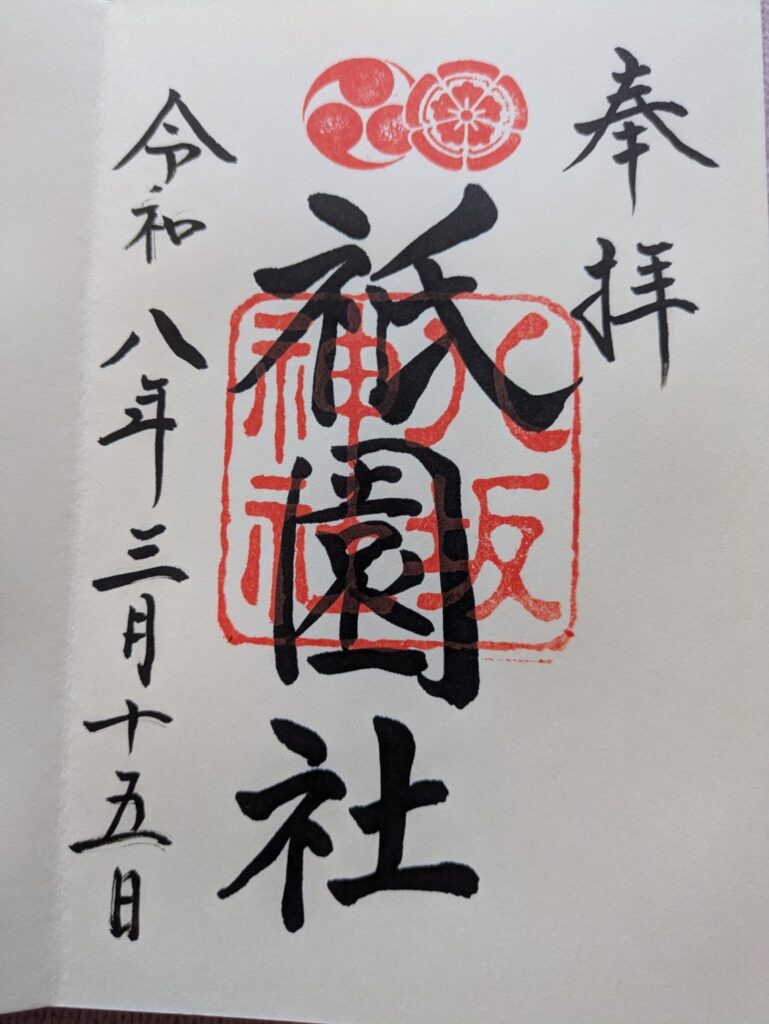 奉拝
祇園社
八坂
神社
令和八年三月十五日